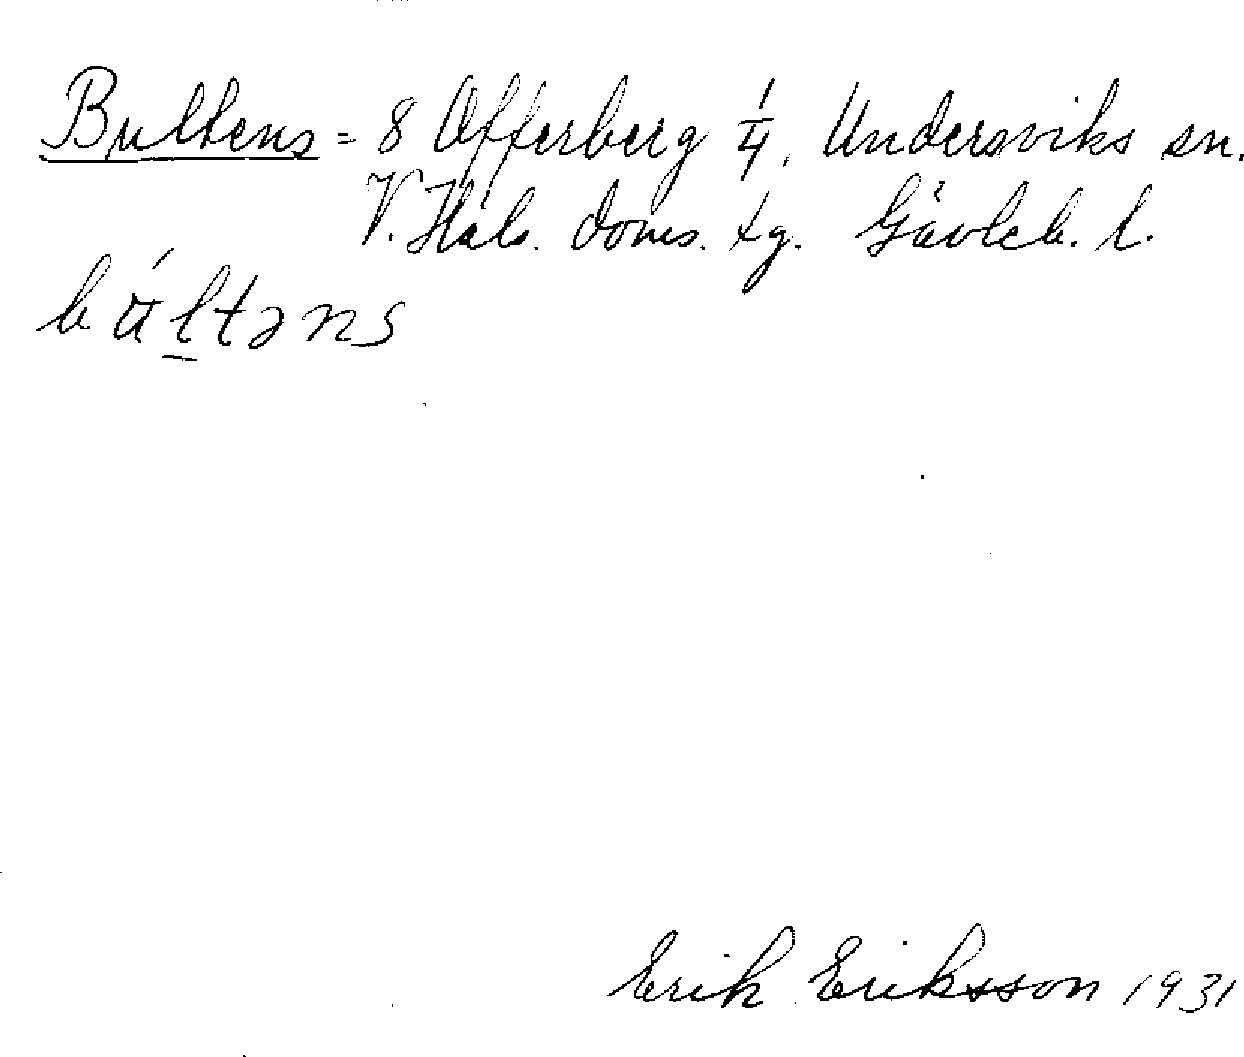 Bultens = 8 Offerberg 1/4, Undersviks sn.
V. Häls. doms. tg. Gävleb. l.
bu̇́ltəns
Erik Eriksson 1931